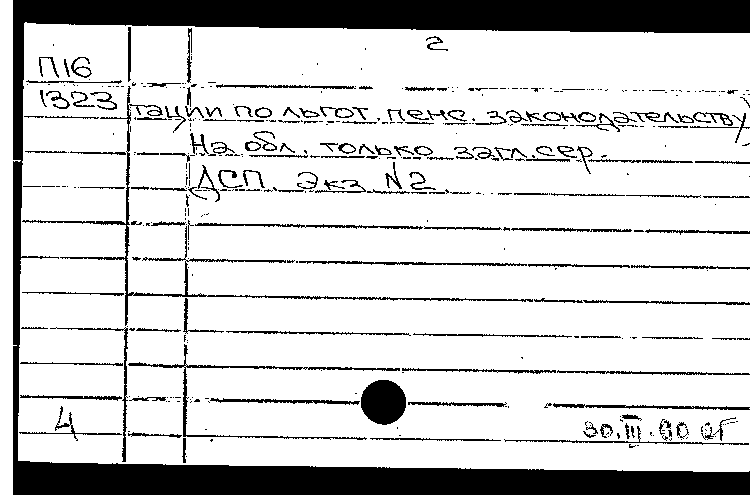 2
П16
1323
тации по льгот. пенс. законодательству)
На обл. только загл. сер.
ДСП. Экз. N2.
4
30.III.